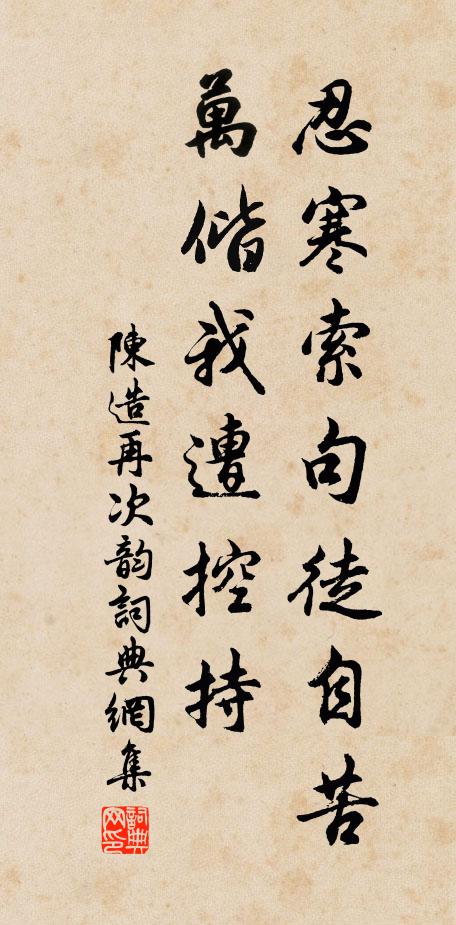 忍寒索句徒自苦
萬偕我遭控持
陳造再次韵詞典網集
詞典网印